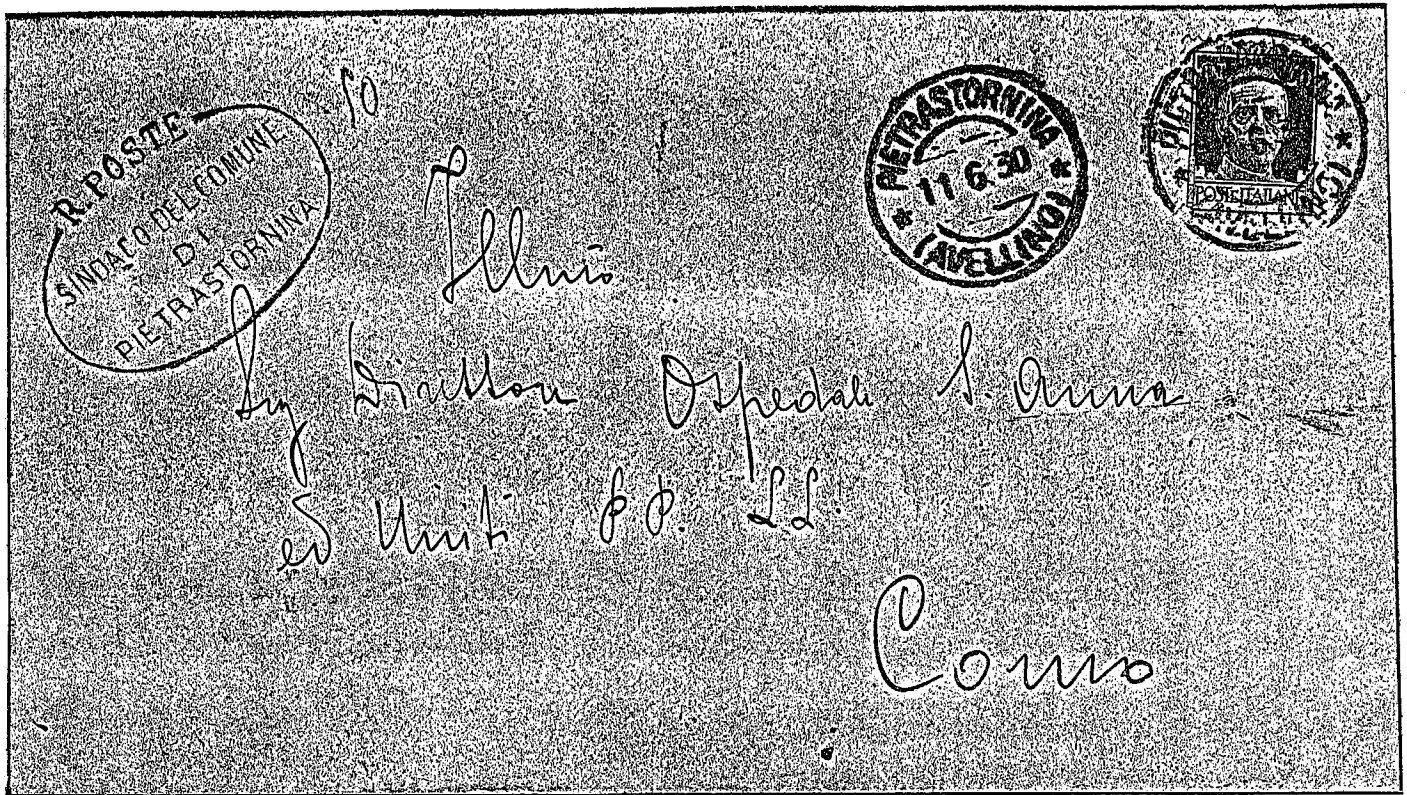 R. POSTE
SINDACO DEL COMUNE
DI
PIETRASTORNINA
50
* PIETRASTORNINA *
11 6.30
(AVELLINO)
POSTE ITALIANE
Illmo
Sig Direttore Ospedale S. Anna
ed Uniti PP. LL.
Como